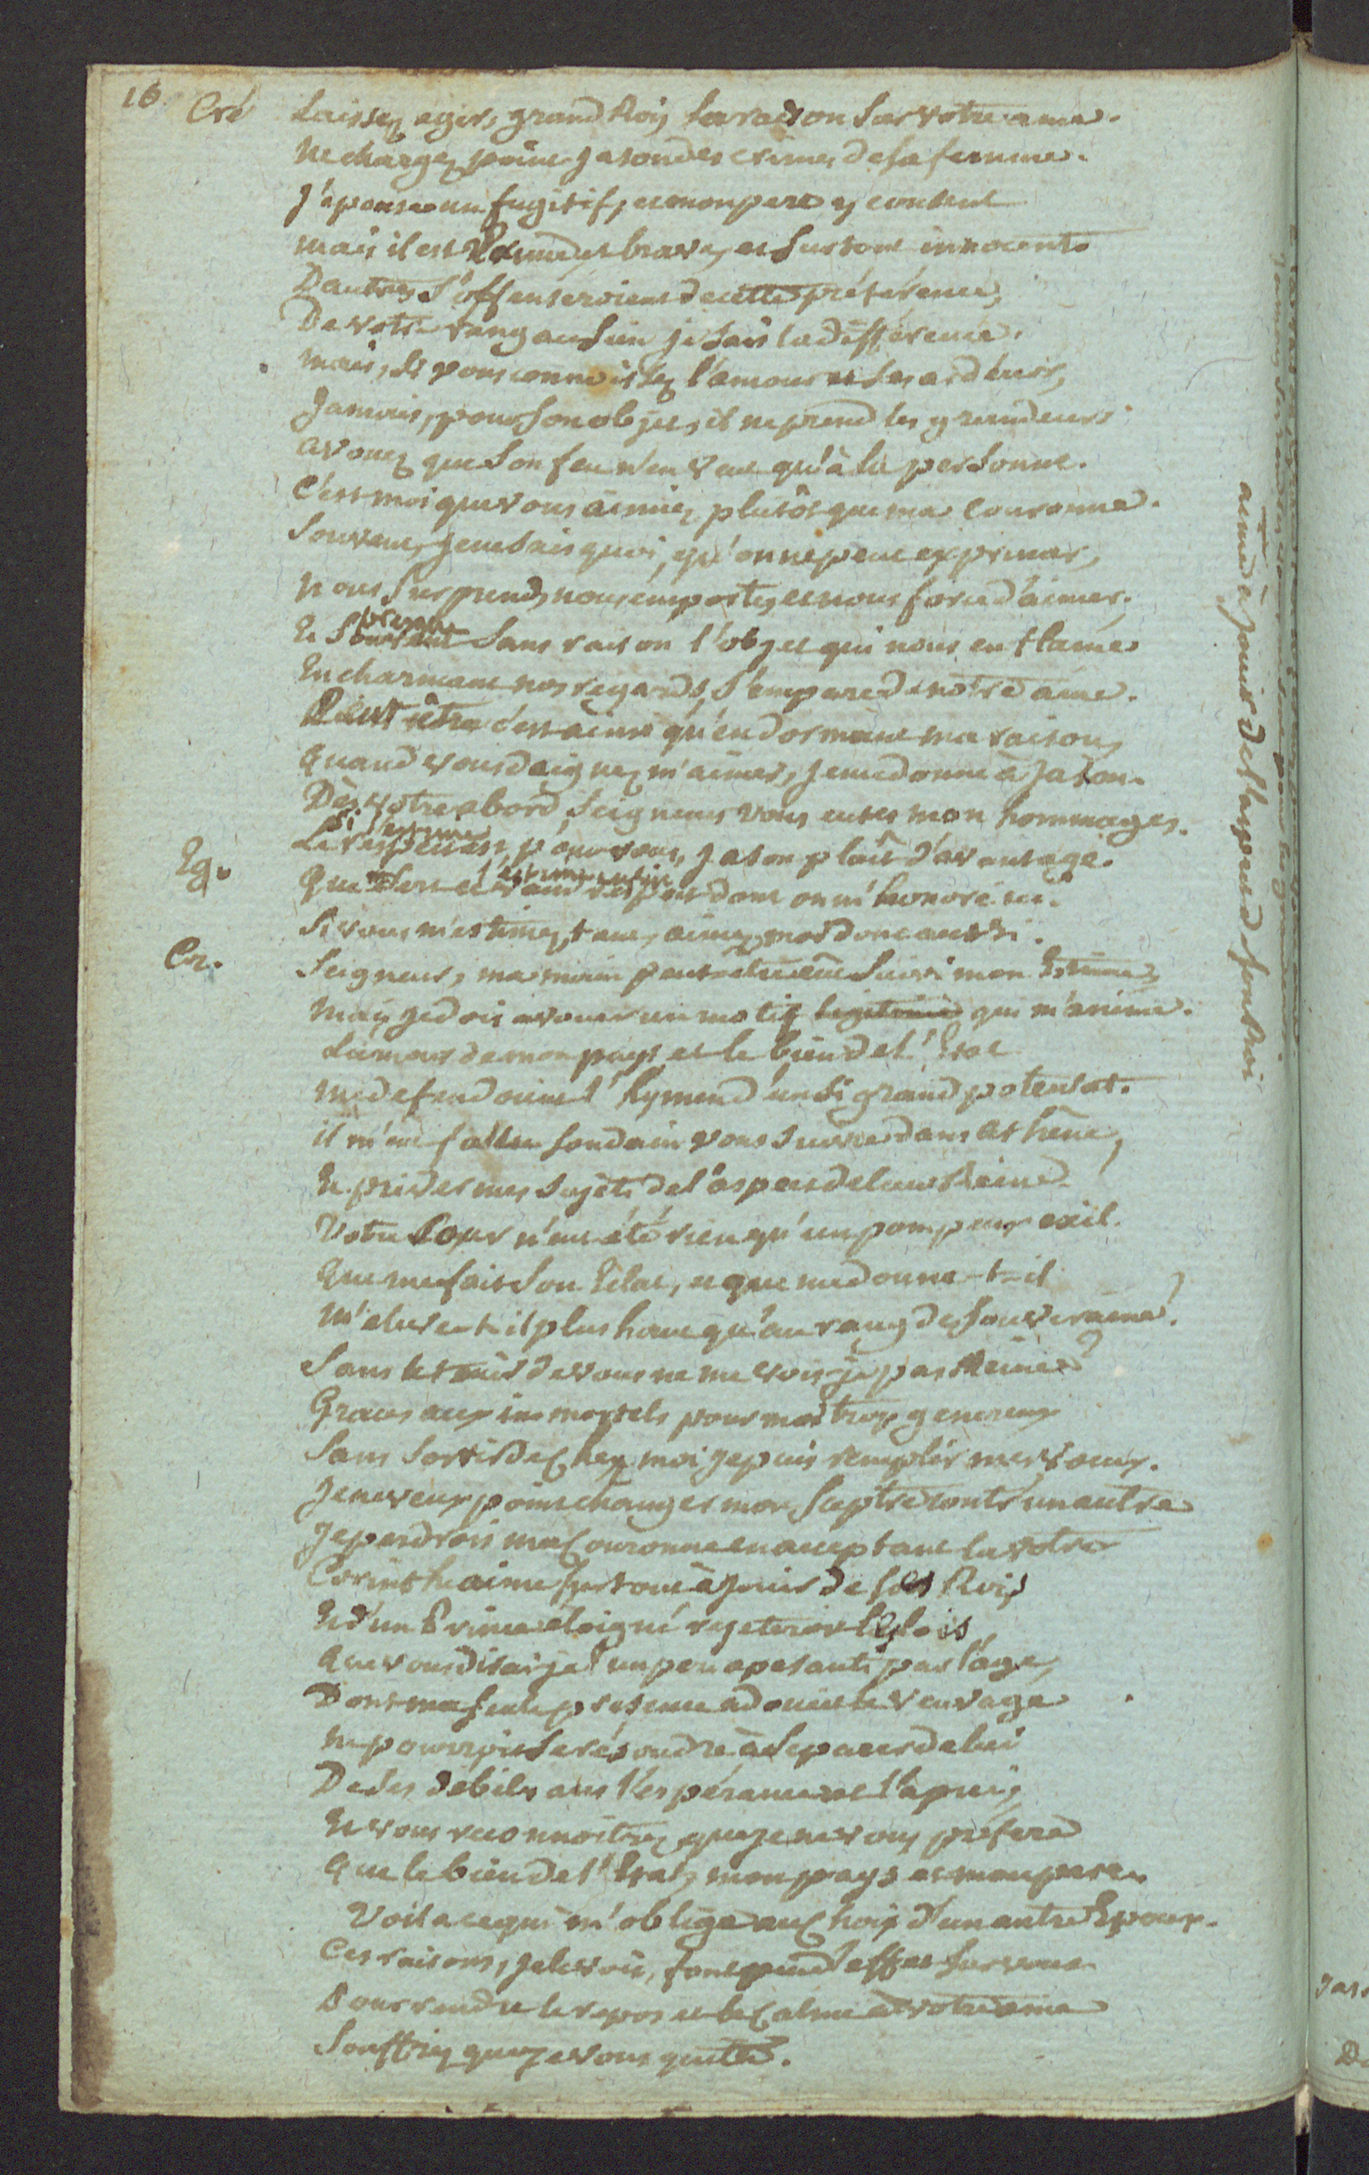 16
Cré Laissez agir, grand Roi, la raison sur votre ame.
Ne chargez point Jason des crimes de sa femme.
J'épouse un fugitif, et mon pere y consent
mais il est et brave, et surtout innocent.
D'autres s'offenseroient de cette préférence,
De votre rang au sien je sais la différence.
mais, si vous connoissez l'amour et ses ardeurs,
Jamais, pour son objet, il ne prend les grandeurs
avouez que son feu n'en veut qu'à la personne.
C'est moi que vous aimiez plutôt que ma couronne.
Souvent je ne sais quoi, qu'on ne peut exprimer,
nous surprend, nous emporte, et nous force d'aimer.
Et souvent sans raison l'objet qui nous enflame
En charmant nos regards, s'empare de notre ame.
Peut être c'est ainsi qu'endormant ma raison,
Quand vous daignez m'aimer, je me donne à Jason.
Dès votre abord, Seigneur, vous eutes mon hommage.
Si l'estime
Le respect est pour vous, Jason plaît d'avantage.
l'estime
Eg. Que sert ce vain respect dont on m'honore ici.
Si vous m'estimez tant, aimez moi donc aussi.
Cr. Seigneur, ma main peut être eût suivi mon Estime,
mais je dois avouer un motif legitime qui m'anime.
L'amour de mon pays et le bien de l'Etat
me defendoient l'hymen d'un si grand potentat.
il m'eut fallu soudain vous suivre dans Athene,
Et priver mes sujets de l'aspect de leur Reine
Votre Cour n'eut été rien qu'un pompeux exil.
Que me fait son Eclat, et que me donne-t-il
M'eleve-t-il plus haut qu'au rang de souveraine?
Sans le tenir de vous ne me vois-je pas Reine?
Graces aux immortels pour moi trop genereux
Sans sortir de chez moi je puis remplir mes voeux.
Je ne veux point changer mon sceptre contre un autre
Je perdrois ma Couronne en acceptant la votre
Corinthe aime surtout à jouir de ses Rois
Et d'un Prince éloigné rejeteroit les lois
Que vous dirai je! un pere apesanti par l'âge,
Dont ma seule presence adoucit le veuvage
ne pourroit se résoudre à separer de lui
De ses debiles ans l'espérance et l'apui,
Et vous reconnoitrez que je ne vous prefere
Que le bien de l'Etat, mon pays et mon pere.
Voila ce qui m'oblige au choix d'un autre Epoux.
Ces raisons, je le vois, font peu d'effet sur vous
Pour rendre le repos et le calme à votre ame
Souffrez que je vous quitte.
aime à jouir de l'aspect de son Roi